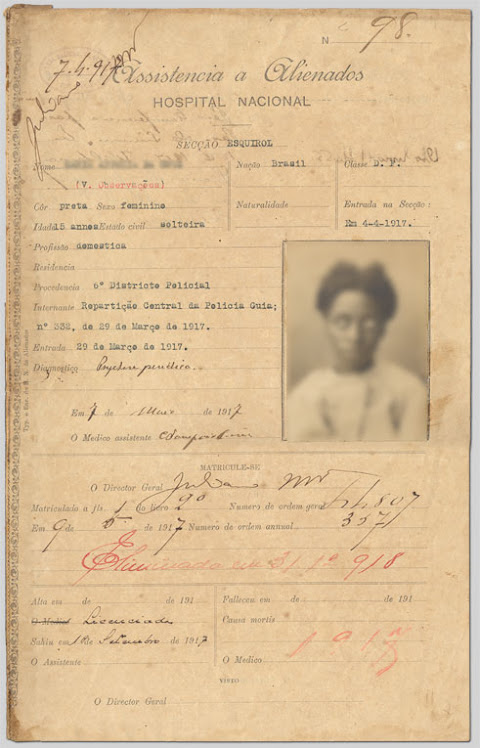 N 98.
7.4.917
Juliano
Assistencia a Alienados
HOSPITAL NACIONAL
SECÇÃO ESQUIROL
Nome
Nação Brasil
Classe
(V. Observações)
Côr preta Sexo feminino
Naturalidade
Entrada na Secção:
Idade 15 annos Estado civil solteira
Em 4-4-1917.
Profissão domestica
Residencia
Procedencia 6º Districto Policial
Internante Repartição Central da Policia Guia;
nº 332, de 29 de Março de 1917.
Entrada 29 de Março de 1917.
Diagnostico
Em 7 de de 1917
O Medico assistente
MATRICULE-SE
O Director Geral Juliano
Matriculada a fls. 1 do livro 9º Numero de ordem geral
Em 9 de de 1917 Numero de ordem annual
Eliminada em 31 1º 918
Alta em de de 191
Falleceu em de de 191
Licenciada
Causa mortis
Sahiu em de Setembro de 1917
1917
O Assistente
O Medico
VISTO
O Director Geral